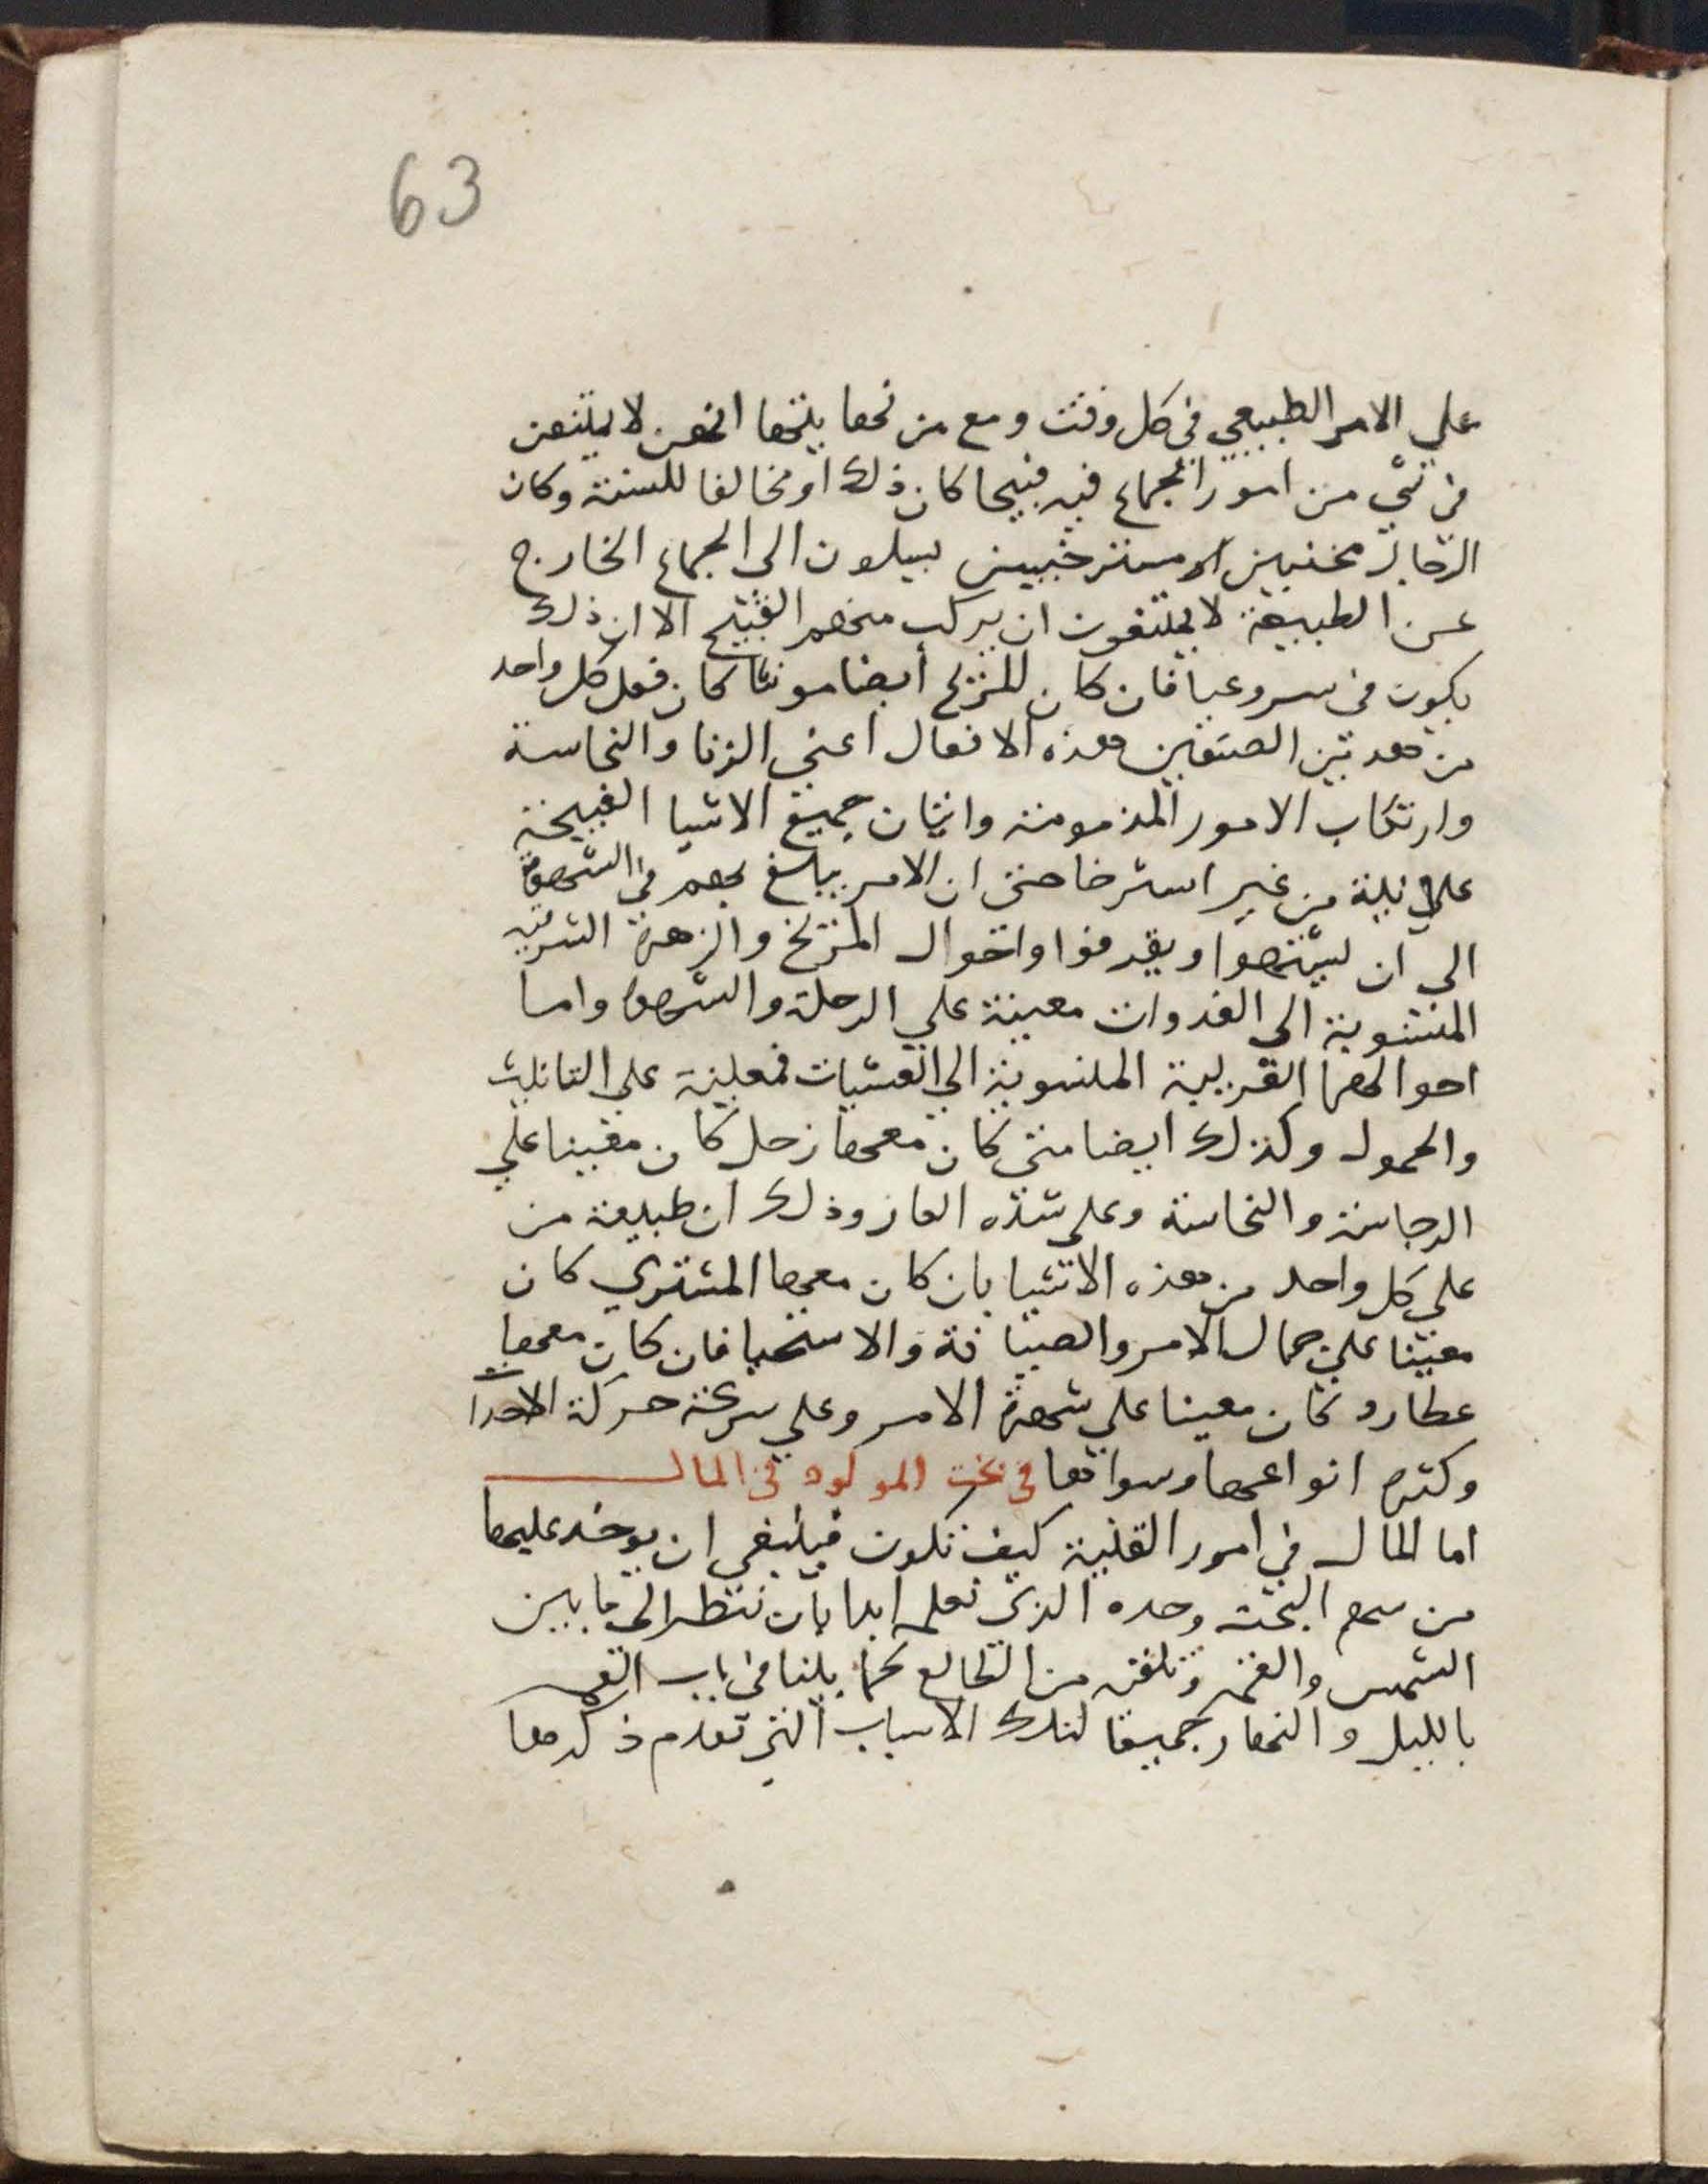 63
علي الامر الطبيعي في كل وقت ومع من نحا ينحا انهن لا يمتنعن
في شي من امور الجماع فيه قبيحا كان ذلك او مخالفا للسنة وكان
الرجال مخنثين او مسترخيين يميلون الى الجماع الخارج
عن الطبيعة لا يمتنعون ان يركب منهم القبيح الا ان ذلك
يكون في سر وعبا فان كان المريخ أيضا مونثا كان فعل كل واحد
من هذين الصنفين هذه الافعال اعني الزنا والنجاسة
وارتكاب الامور المذمومة واتيان جميع الاشيا القبيحة
علانية من غير استرخا حتى ان الامر يبلغ بهم في الشهوة
الى ان يشتهوا ويقدفوا واحوال المريخ والزهرة الشرقية
المنسوبة الى الغدوات معينة علي الرجلة والشهوة واما
احوالهما الغربية المنسوبة الى العشيات فمعينة على التانيث
والخمول وكذلك ايضا متى كان معهما زحل كان معينا علي
الرجاسة والنجاسة وعلى شدة العار وذلك ان طبيعة من
علي كل واحد من هذه الاشيا بان كان معهما المشتري كان
معينا علي جمال الامر والصيانة والاستحيا فان كان معهما
عطارد كان معينا علي شهرة الامر وعلي سرعة حركة الاحدا
وكثرة انواعها وسواتها في بخت المولود في المال
اما المال في امور القنية كيف تكون فينبغي ان يوخذ عليها
من سهم البخت وحده الذي نعلمه ابدا بان ننظر الى ما بين
الشمس والقمر ونلقيه من الطالع كما بينا في باب القمر
بالليل والنهار جميعا لتلك الاسباب التي تقدم ذكرها